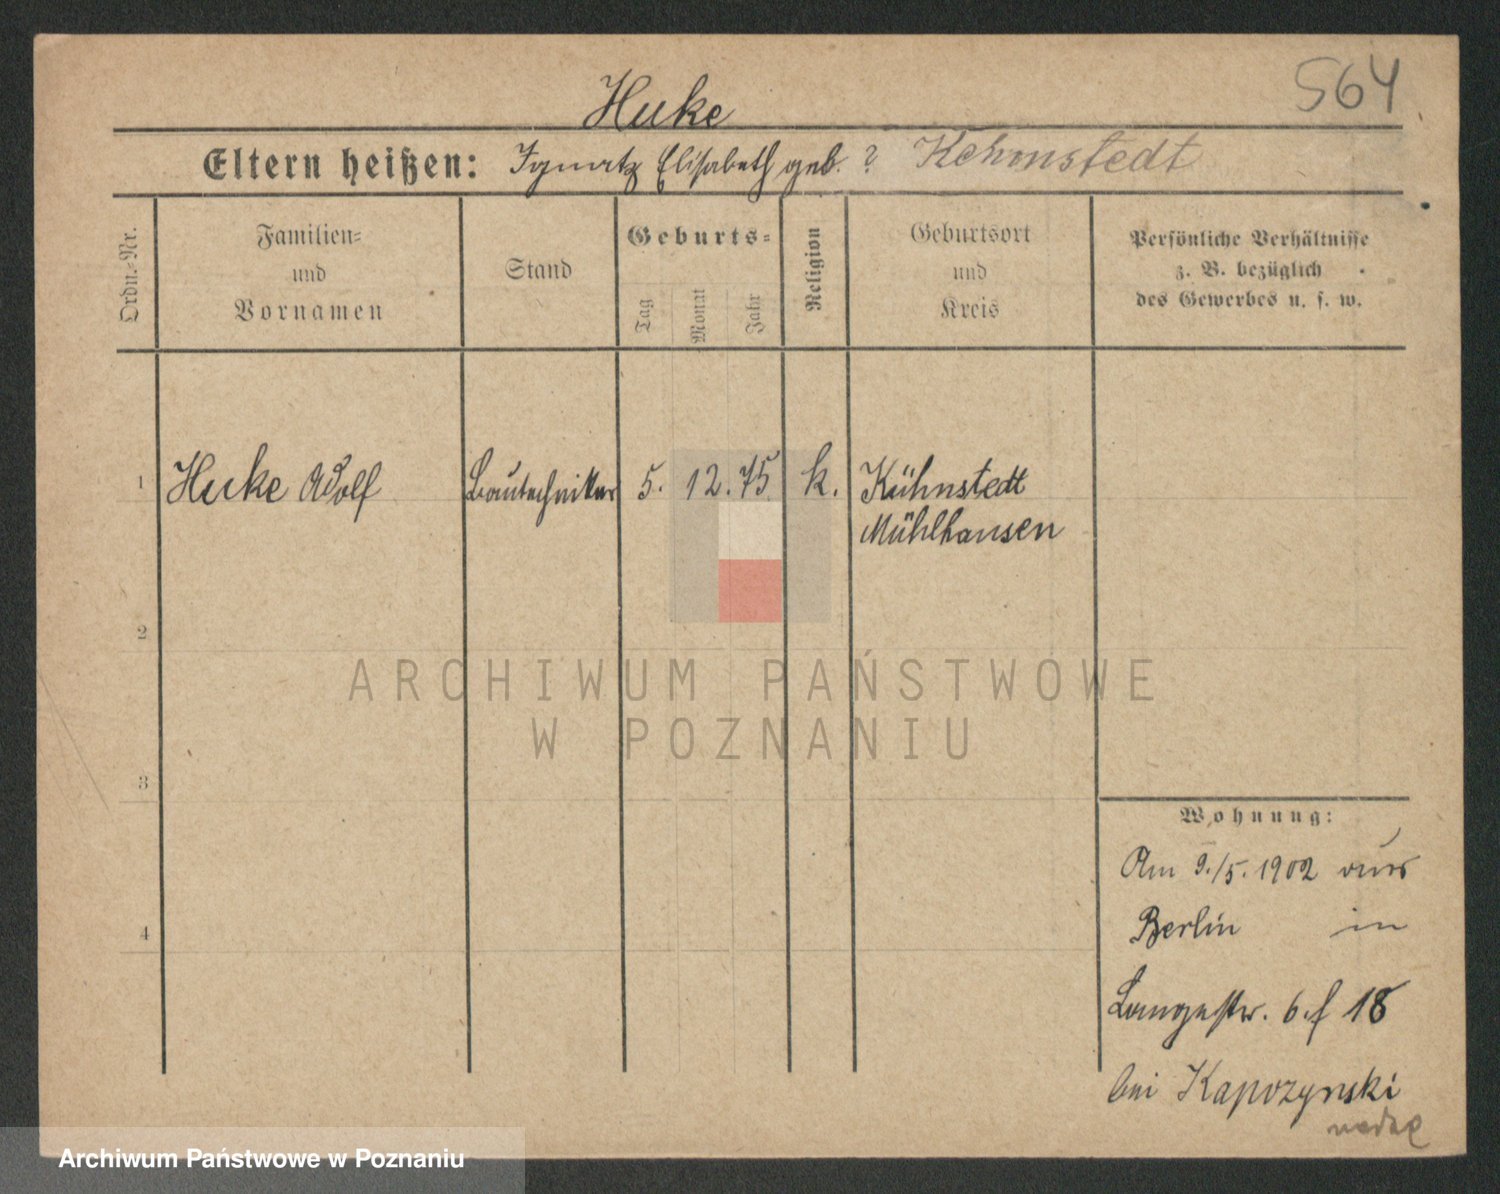 564
Huke
Eltern heißen: Ignatz Elisabeth geb. ? Kehmstedt
Ordn.-Nr.
Familien-
und
Vornamen
Stand
Geburts-
Tag
Monat
Jahr
Religion
Geburtsort
und
Kreis
Persönliche Verhältnisse
z. B. bezüglich
des Gewerbes u. s. w.
1 Huke Adolf Bautechniker 5. 12. 75 k. Kühnstedt
Mühlhausen
2
ARCHIWUM PAŃSTWOWE
W POZNANIU
3
4
Wohnung:
Am 9./5. 1902 aus
Berlin in
Langestr. 6 f 18
bei Kapozynski
Archiwum Państwowe w Poznaniu